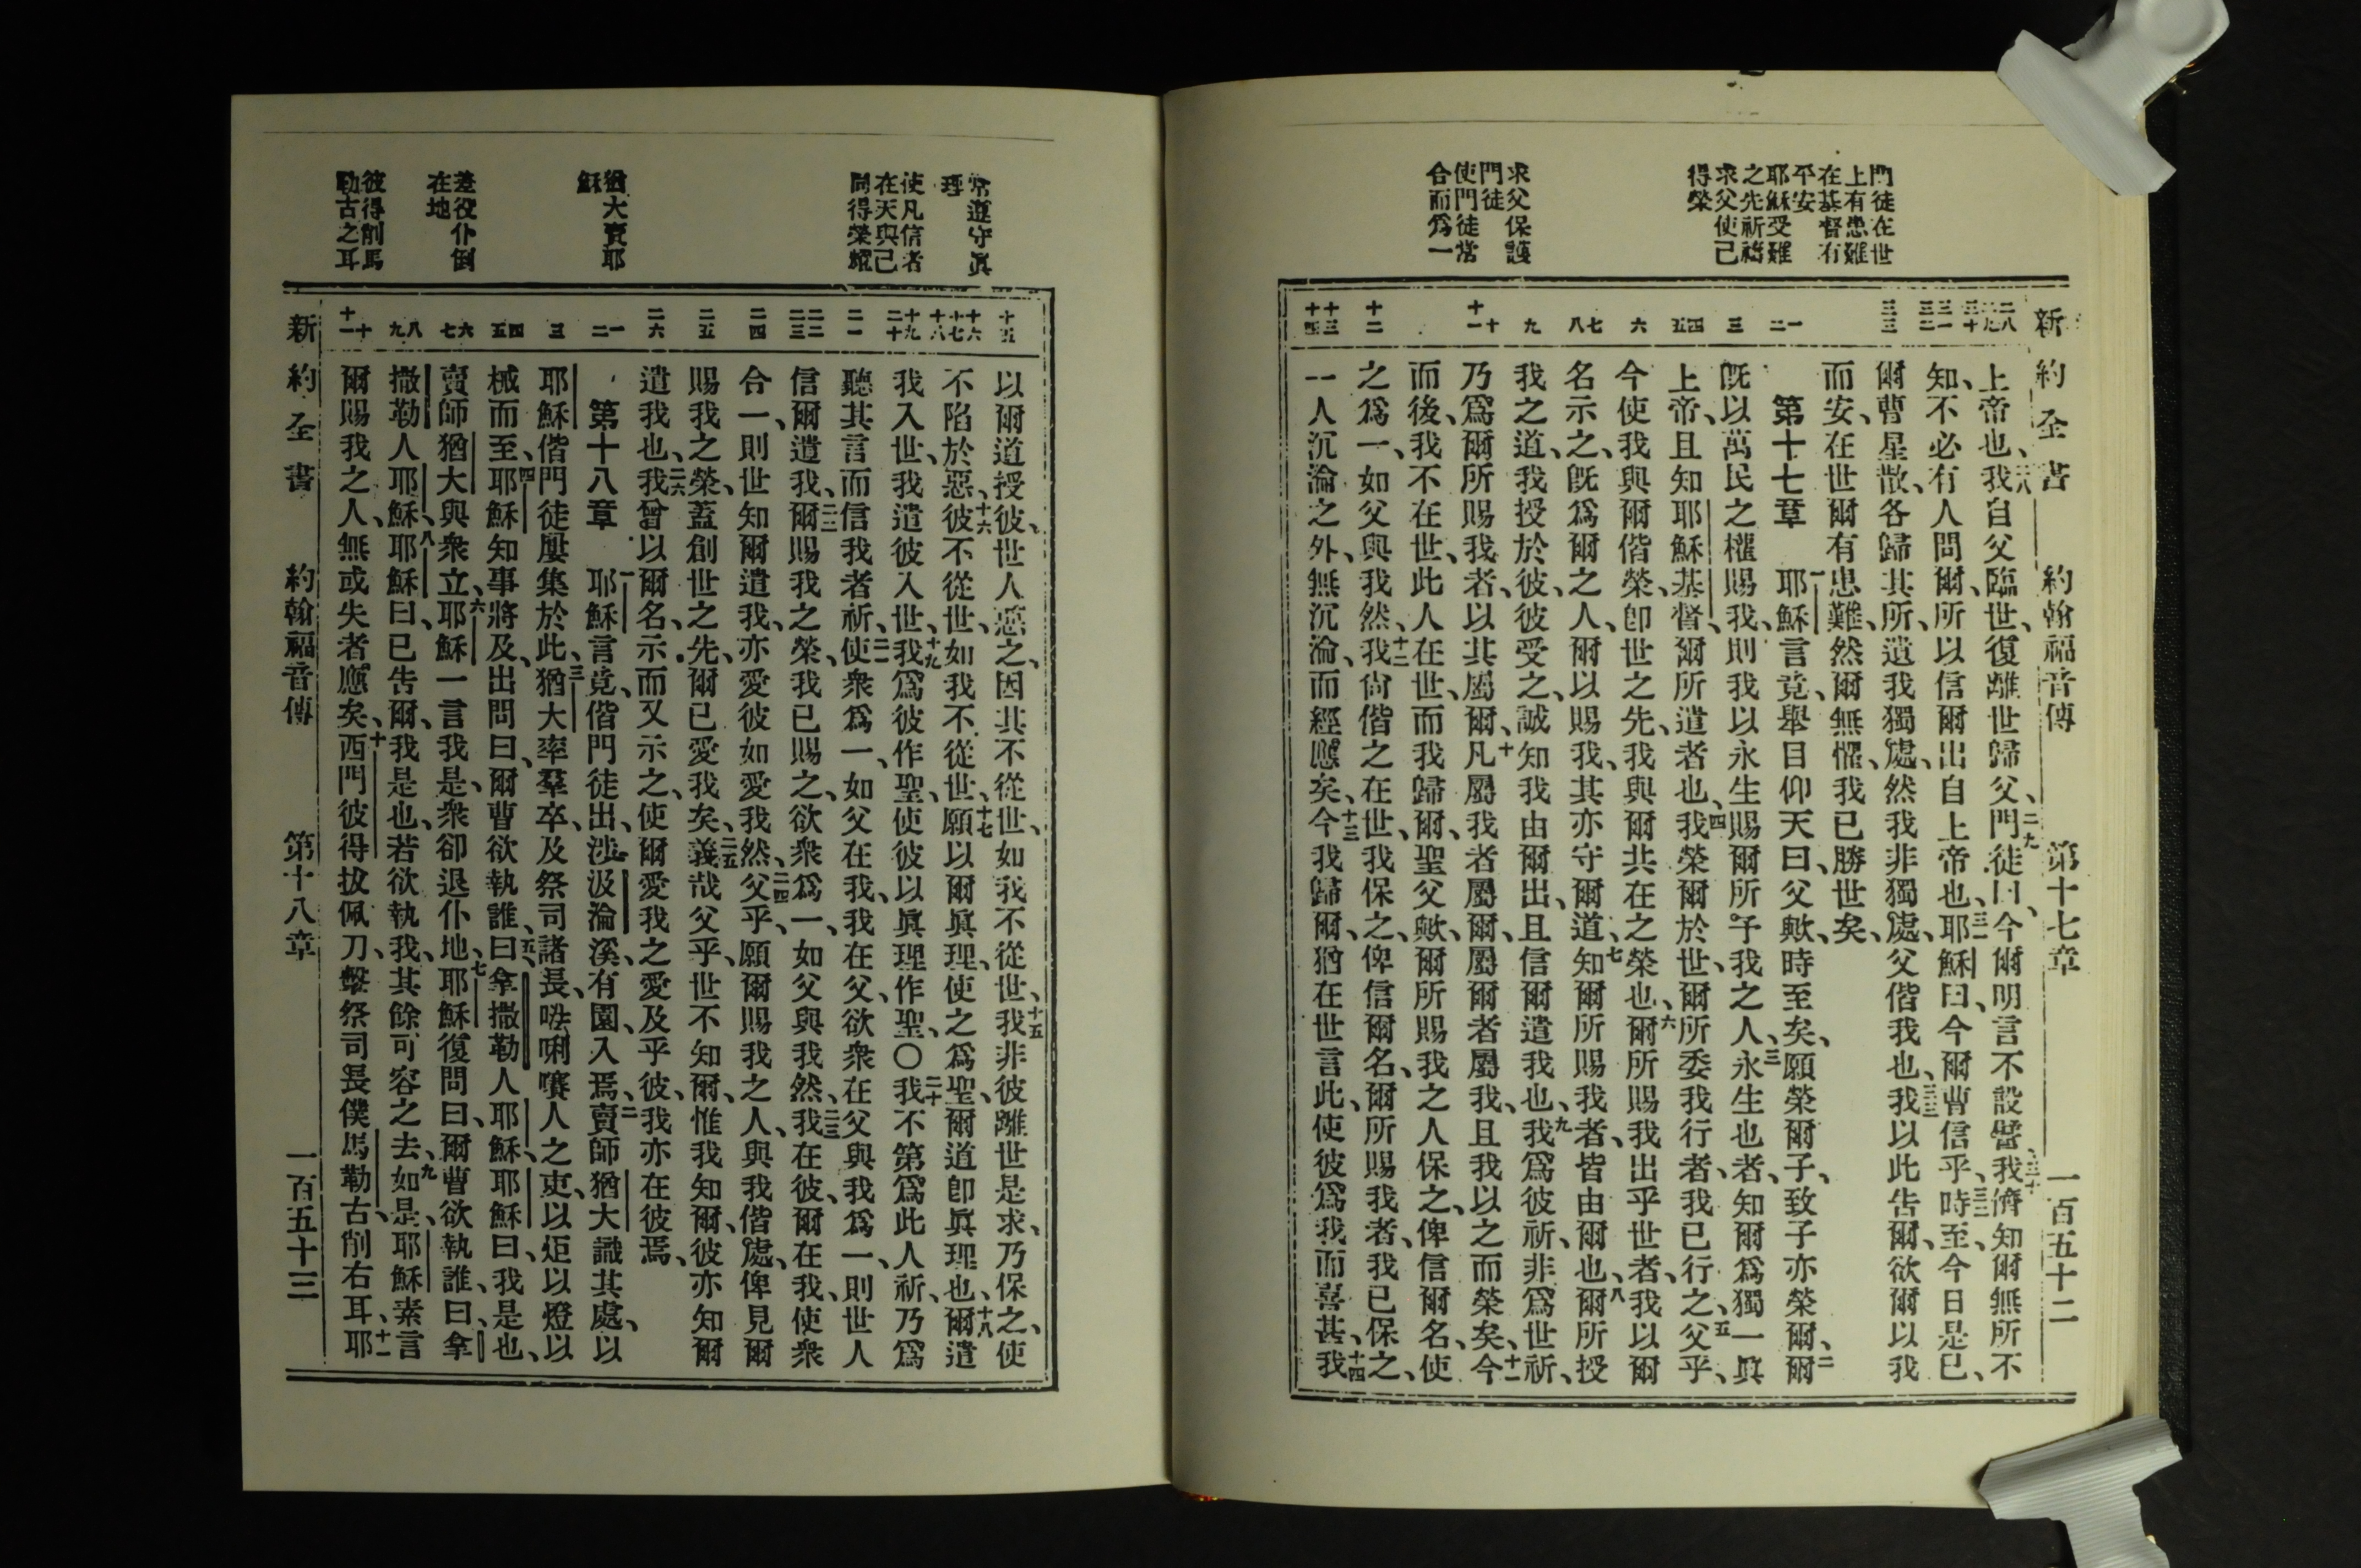 門徒在世
上有患難
在基督有
平安
耶穌受難
之先祈禱
求父使己
得榮
求父保護
門徒
使門徒常
合而爲一
新約全書 約翰福音傳 第十七章 一百五十二
二八 二九 三十 三一 三二 三三 一 二 三 四 五 六 七 八 九 十 十一 十二 十三 十四
上帝也、二八我自父臨世、復離世歸父、二九門徒曰、今爾明言不設譬、三十我儕知爾無所不
知、不必有人問爾、所以信爾出自上帝也、三一耶穌曰、今爾曹信乎、三二時至、今日是已、
爾曹星散、各歸其所、遺我獨處、然我非獨處、父偕我也、三三我以此告爾、欲爾以我
而安、在世爾有患難、然爾無懼、我已勝世矣、
第十七章 一耶穌言竟、舉目仰天曰、父歟、時至矣、願榮爾子、致子亦榮爾、二爾
旣以萬民之權賜我、則我以永生賜爾所予我之人、三永生也者、知爾爲獨一眞
上帝、且知耶穌基督、爾所遣者也、四我榮爾於世、爾所委我行者、我已行之、五父乎、
今使我與爾偕榮、卽世之先、我與爾共在之榮也、六爾所賜我出乎世者、我以爾
名示之、旣爲爾之人、爾以賜我、其亦守爾道、七知爾所賜我者、皆由爾也、八爾所授
我之道、我授於彼、彼受之、誠知我由爾出、且信爾遣我也、九我爲彼祈、非爲世祈、
乃爲爾所賜我者、以其屬爾、十凡屬我者屬爾、屬爾者屬我、且我以之而榮矣、十一今
而後、我不在世、此人在世、而我歸爾、聖父歟、爾所賜我之人保之、俾信爾名、使
之爲一、如父與我然、十二我尙偕之在世、我保之、俾信爾名、爾所賜我者、我已保之、
一人沉淪之外、無沉淪、而經應矣、十三今我歸爾、猶在世言此、使彼爲我而喜甚、十四我
常遵守眞
理
使凡信者
在天與己
同得榮耀
猶大賣耶
穌
差役仆倒
在地
彼得削馬
勒古之耳
十五 十六 十七 十八 十九 二十 二一 二二 二三 二四 二五 二六 一 二 三 四 五 六 七 八 九 十 十一
以爾道授彼、世人惡之、因其不從世、如我不從世、十五我非彼離世是求、乃保之、使
不陷於惡、十六彼不從世、如我不從世、十七願以爾眞理、使之爲聖、爾道卽眞理也、十八爾遣
我入世、我遣彼入世、十九我爲彼作聖、使彼以眞理作聖、〇二十我不第爲此人祈、乃爲
聽其言而信我者祈、二一使衆爲一、如父在我、我在父、欲衆在父與我爲一、則世人
信爾遣我、二二爾賜我之榮、我已賜之、欲衆爲一、如父與我然、二三我在彼、爾在我、使衆
合一、則世知爾遣我、亦愛彼如愛我然、二四父乎、願爾賜我之人、與我偕處、俾見爾
賜我之榮、蓋創世之先、爾已愛我矣、二五義哉父乎、世不知爾、惟我知爾、彼亦知爾
遣我也、二六我曾以爾名、示而又示之、使爾愛我之愛及乎彼、我亦在彼焉、
第十八章 一耶穌言竟、偕門徒出、涉汲淪溪、有園、入焉、二賣師猶大識其處、以
耶穌偕門徒屢集於此、三猶大率羣卒、及祭司諸長、𠵽唎㘔人之吏、以炬以燈以
械而至、四耶穌知事將及、出問曰、爾曹欲執誰、五曰、拿撒勒人耶穌、耶穌曰、我是也、
賣師猶大與衆立、六耶穌一言我是、衆卻退仆地、七耶穌復問曰、爾曹欲執誰、曰、拿
撒勒人耶穌、八耶穌曰、已告爾、我是也、若欲執我、其餘可容之去、九如是、耶穌素言
爾賜我之人、無或失者應矣、十西門彼得拔佩刀、擊祭司長僕馬勒古、削右耳、十一耶
新約全書 約翰福音傳 第十八章 一百五十三